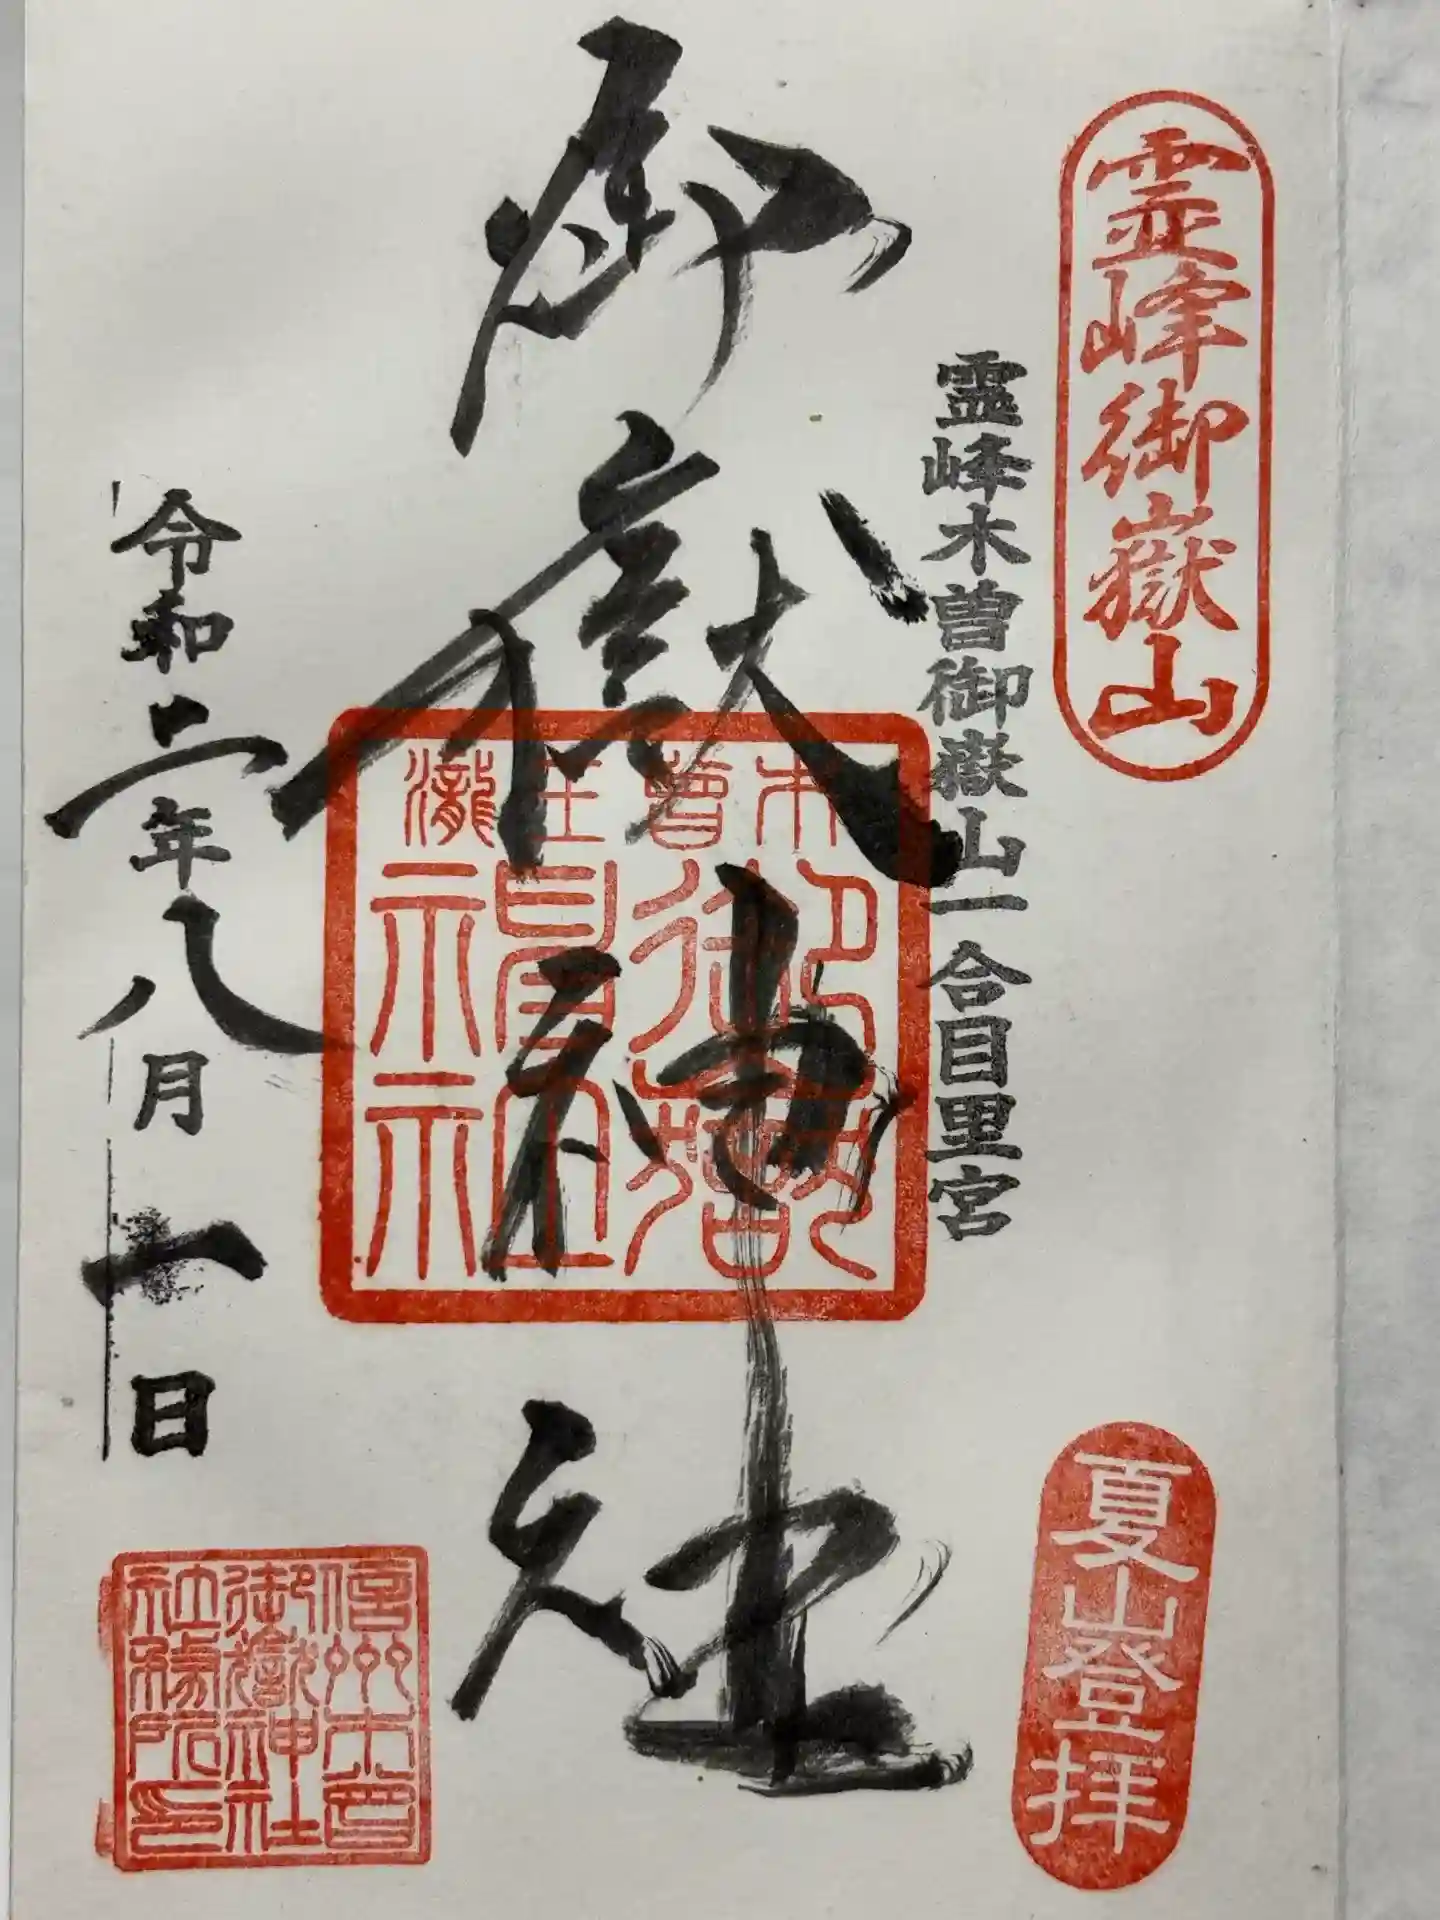 霊峰御嶽山
夏山登拝
霊峰木曽御嶽山一合目里宮
御嶽神社
木曽王瀧
御嶽
神社
令和二年八月一日
信州木曽
御嶽神社
社務所印